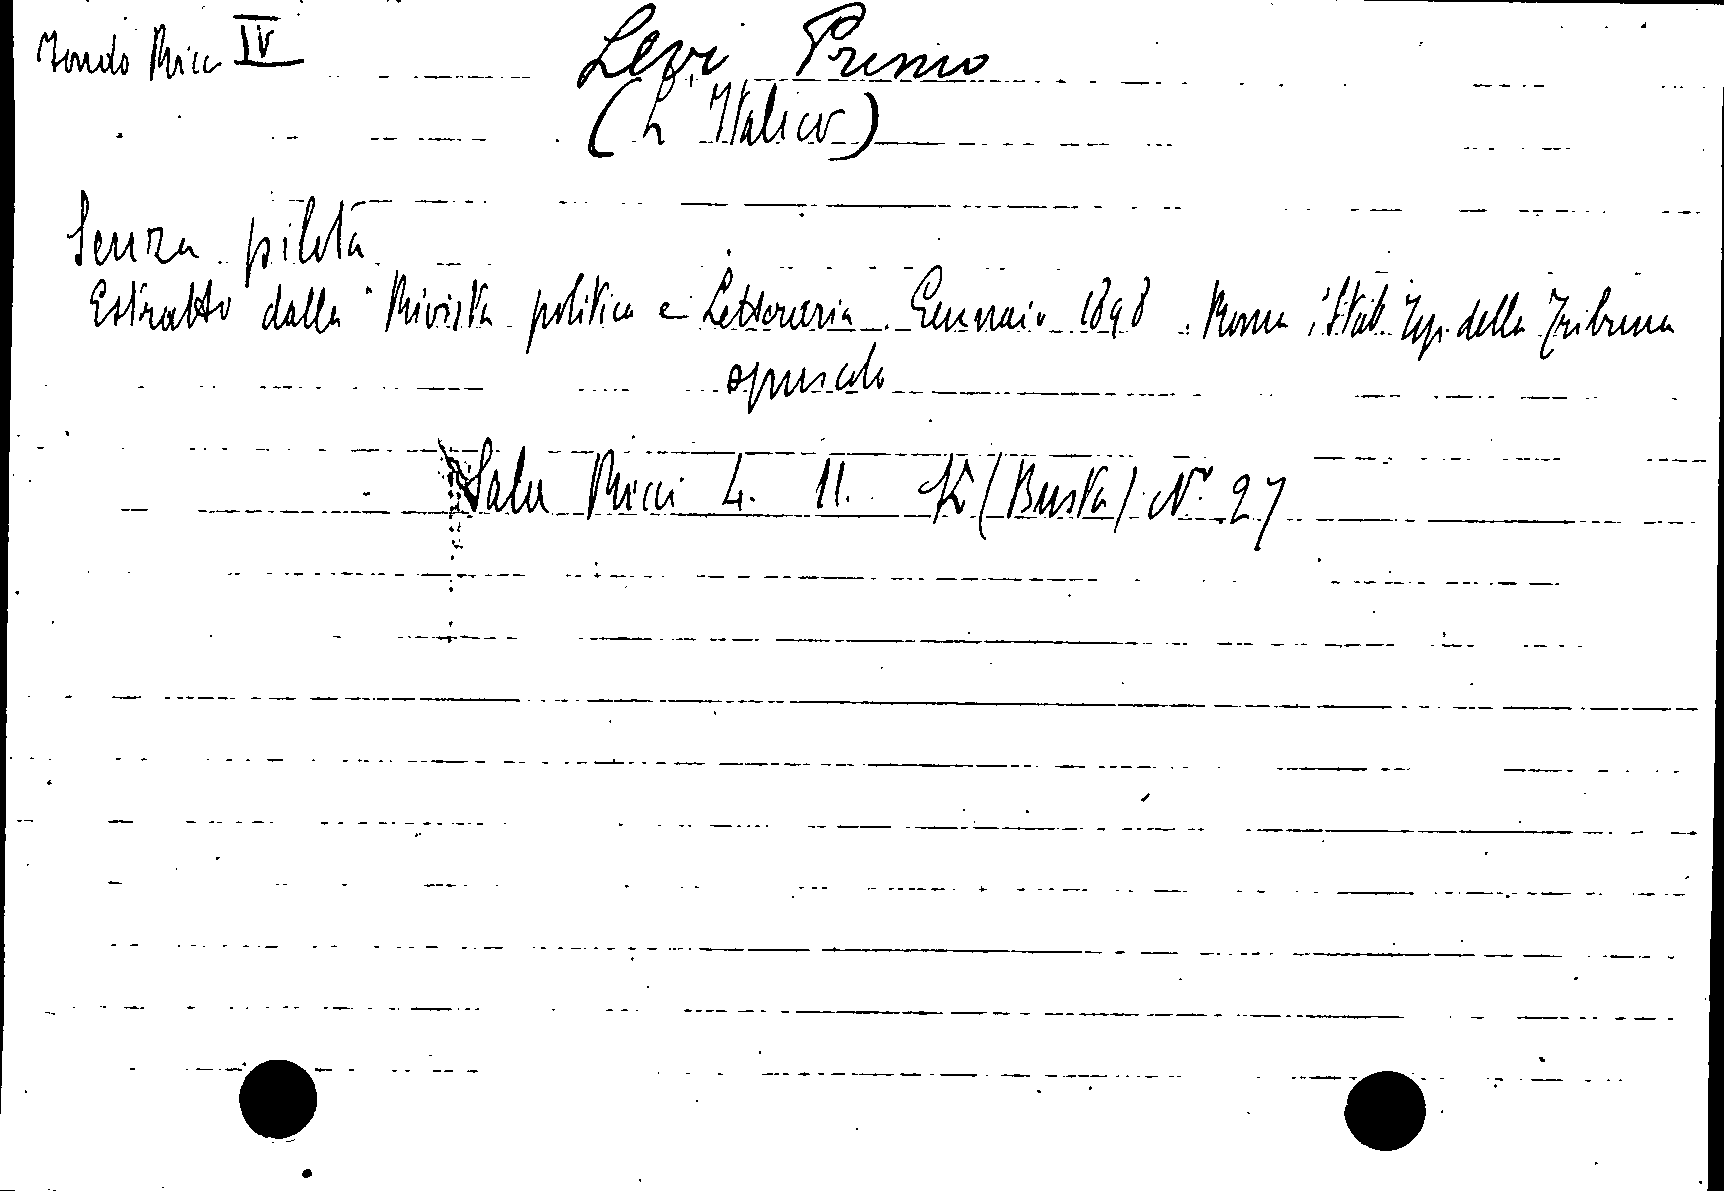 Fondo Ricci IV
Levi Primo
(L'Italico)
Senza pilota
Estratto dalla "Rivista politica e Letteraria. Gennaio 1898. Roma, Stab. Typ. della Tribuna
opuscolo
Sala Ricci 4. 11. K (Busta) N. 27